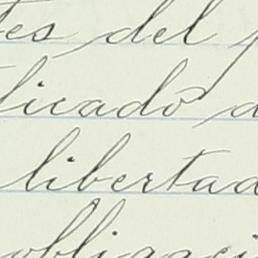 tes del p
licado a
libertad
obligaci